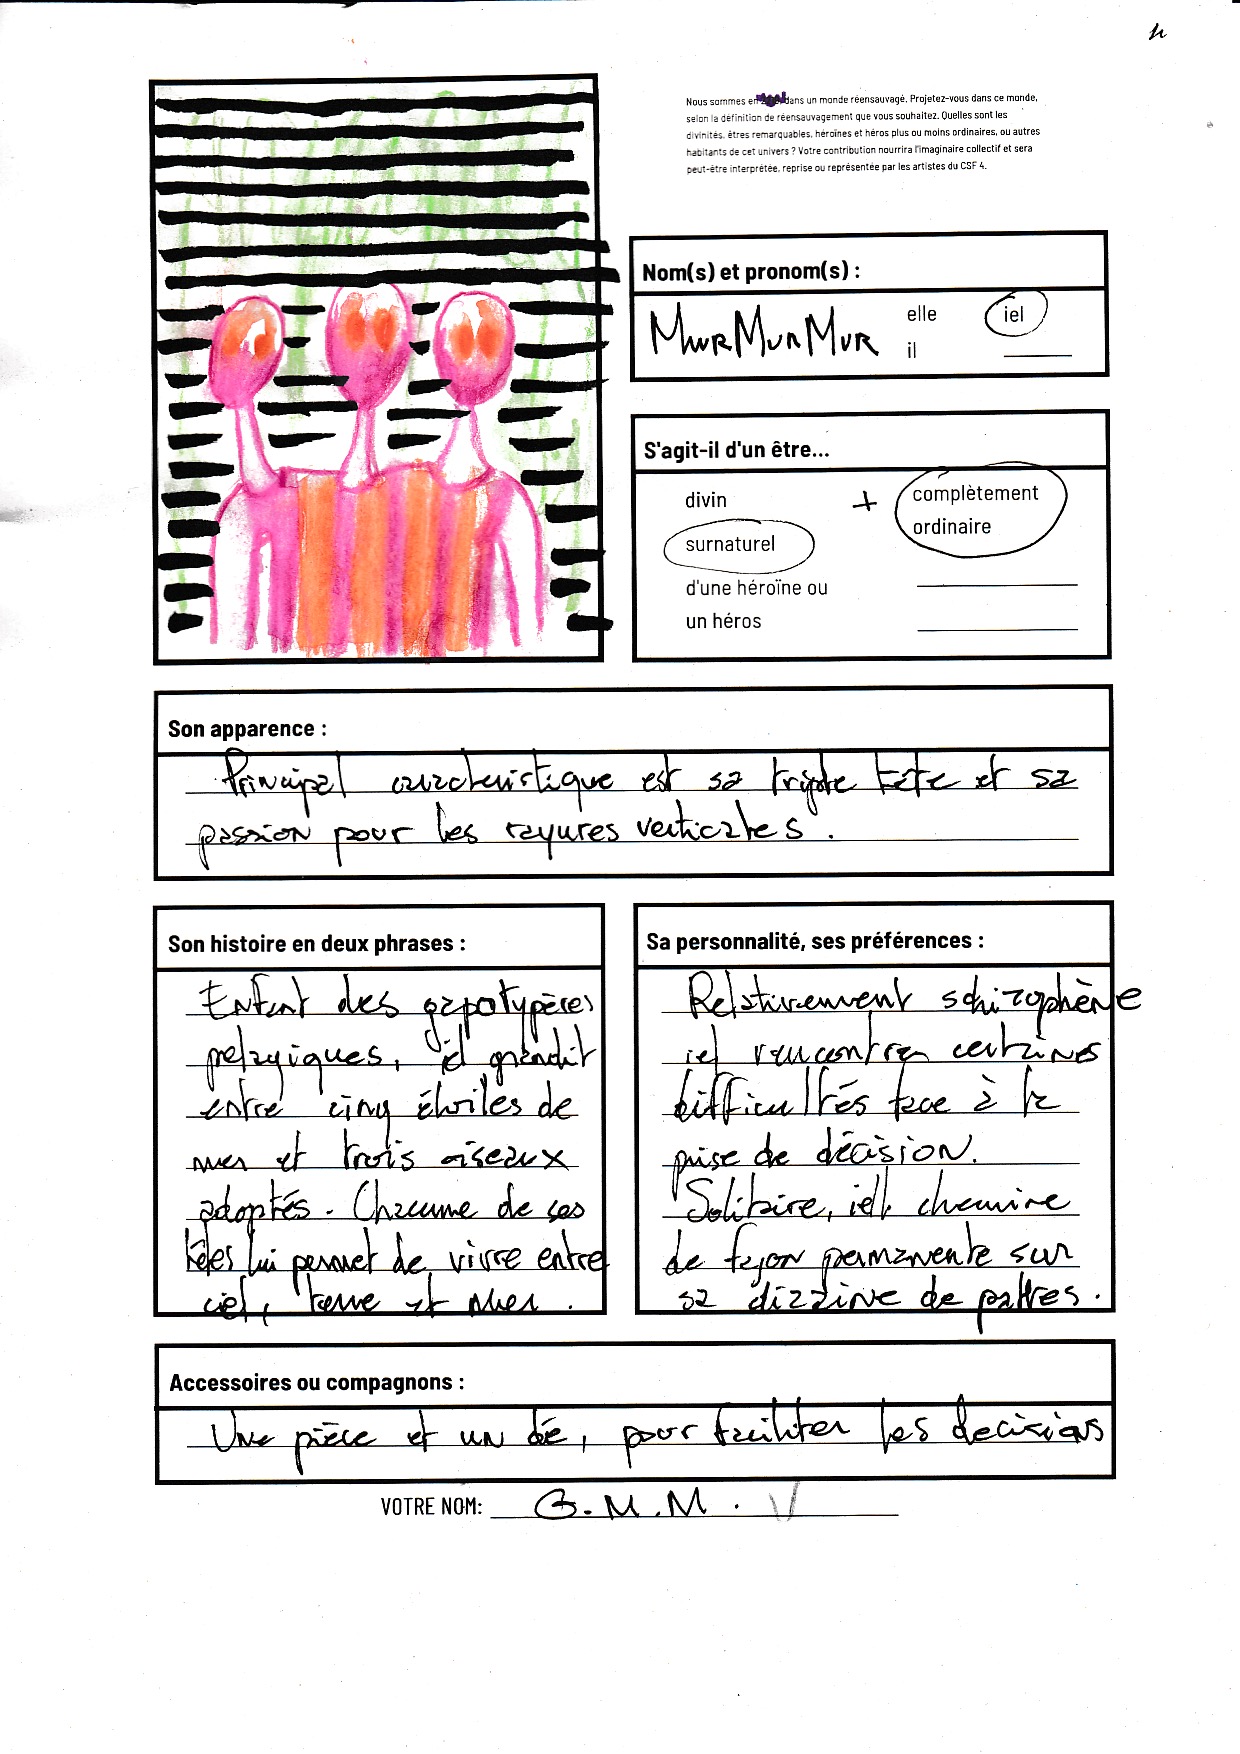 Nous sommes en dans un monde réensauvagé. Projetez-vous dans ce monde,
selon la définition de réensauvagement que vous souhaitez. Quelles sont les
divinités, êtres remarquables, héroïnes et héros plus ou moins ordinaires, ou autres
habitants de cet univers ? Votre contribution nourrira l'imaginaire collectif et sera
peut-être interprétée, reprise ou représentée par les artistes du CSF 4.
Nom(s) et pronom(s) :
MurMurMur
elle
iel
il
S'agit-il d'un être...
divin
+
complètement
ordinaire
surnaturel
d'une héroïne ou
un héros
Son apparence :
Principal caractéristique est sa triple tête et sa
passion pour les rayures verticales.
Son histoire en deux phrases :
Enfant des
pelagiques, iel grandit
entre cinq étoiles de
mer et trois oiseaux
adoptés. Chacune de ses
têtes lui permet de vivre entre
ciel, terre et mer.
Sa personnalité, ses préférences :
Relativement schizophrène
iel rencontre certaines
difficultés face à la
prise de décision.
Solitaire, iel chemine
de façon permanente sur
sa dizaine de pattes.
Accessoires ou compagnons :
Une pièce et un dé, pour faciliter les decisions
VOTRE NOM: G.M.M.